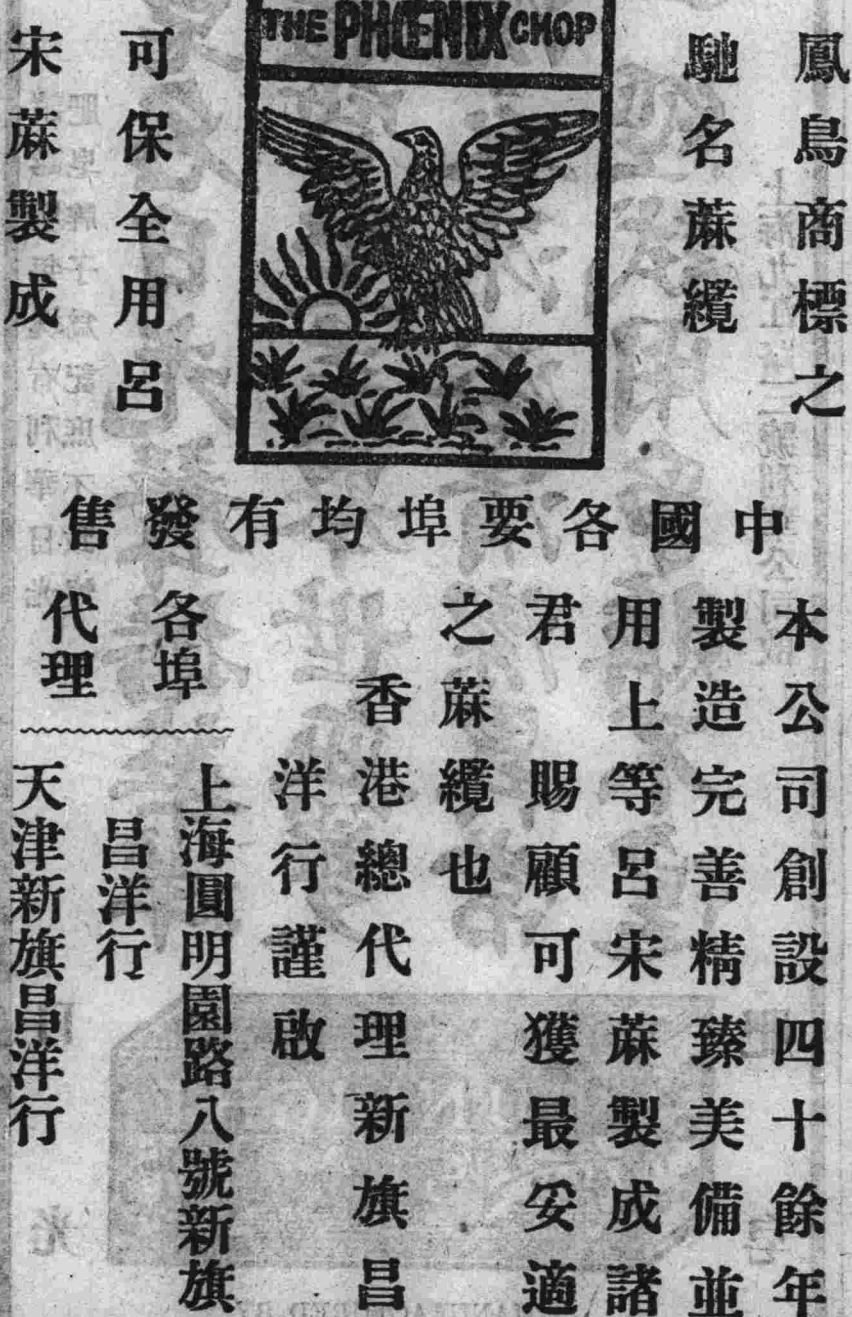 THE PHŒNIX CHOP
鳳鳥商標之
馳名蔴纜
可保全用呂
宋蔴製成
中國各要埠均有發售
本公司創設四十餘年
製造完善精臻美備並
用上等呂宋蔴製成諸
君　賜顧可獲最妥適
之蔴纜也
香港總代理新旗昌
洋行謹啟
各埠
代理
上海圓明園路八號新旗
昌洋行
天津新旗昌洋行